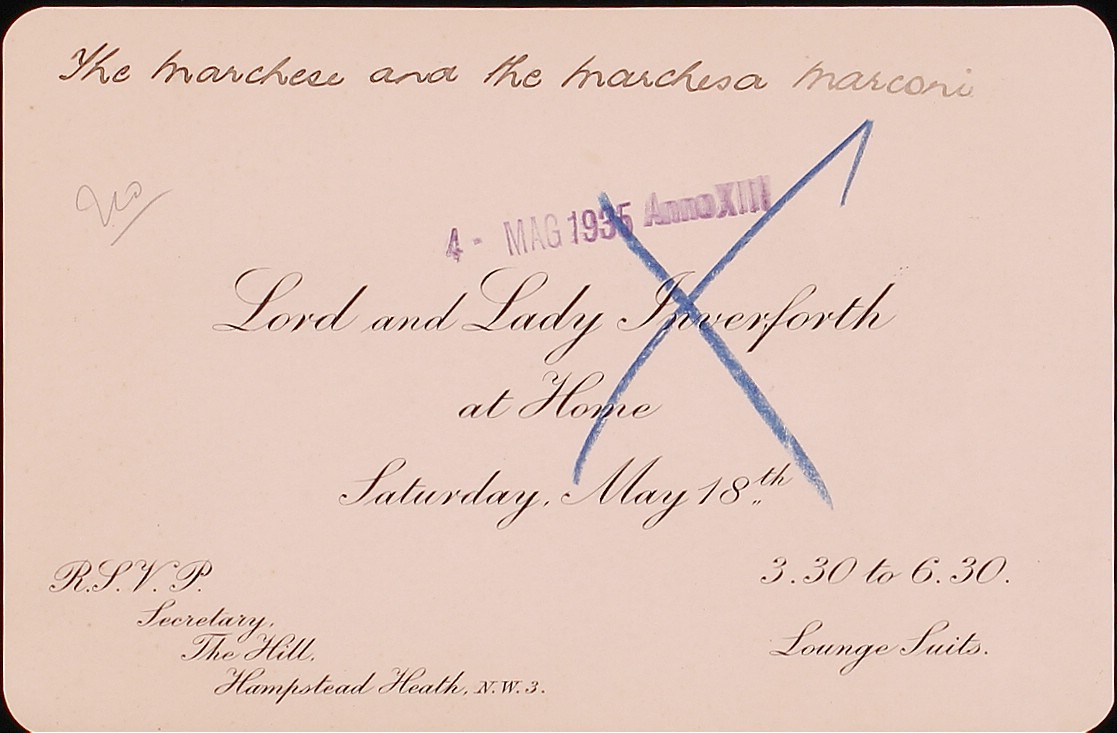 The Marchese and the Marchesa Marconi
No
4 - MAG 1935 Anno XIII
Lord and Lady Inverforth
at Home
Saturday, May 18th
R.S.V.P.
3.30 to 6.30.
Secretary,
The Hill,
Lounge Suits.
Hampstead Heath, N.W.3.